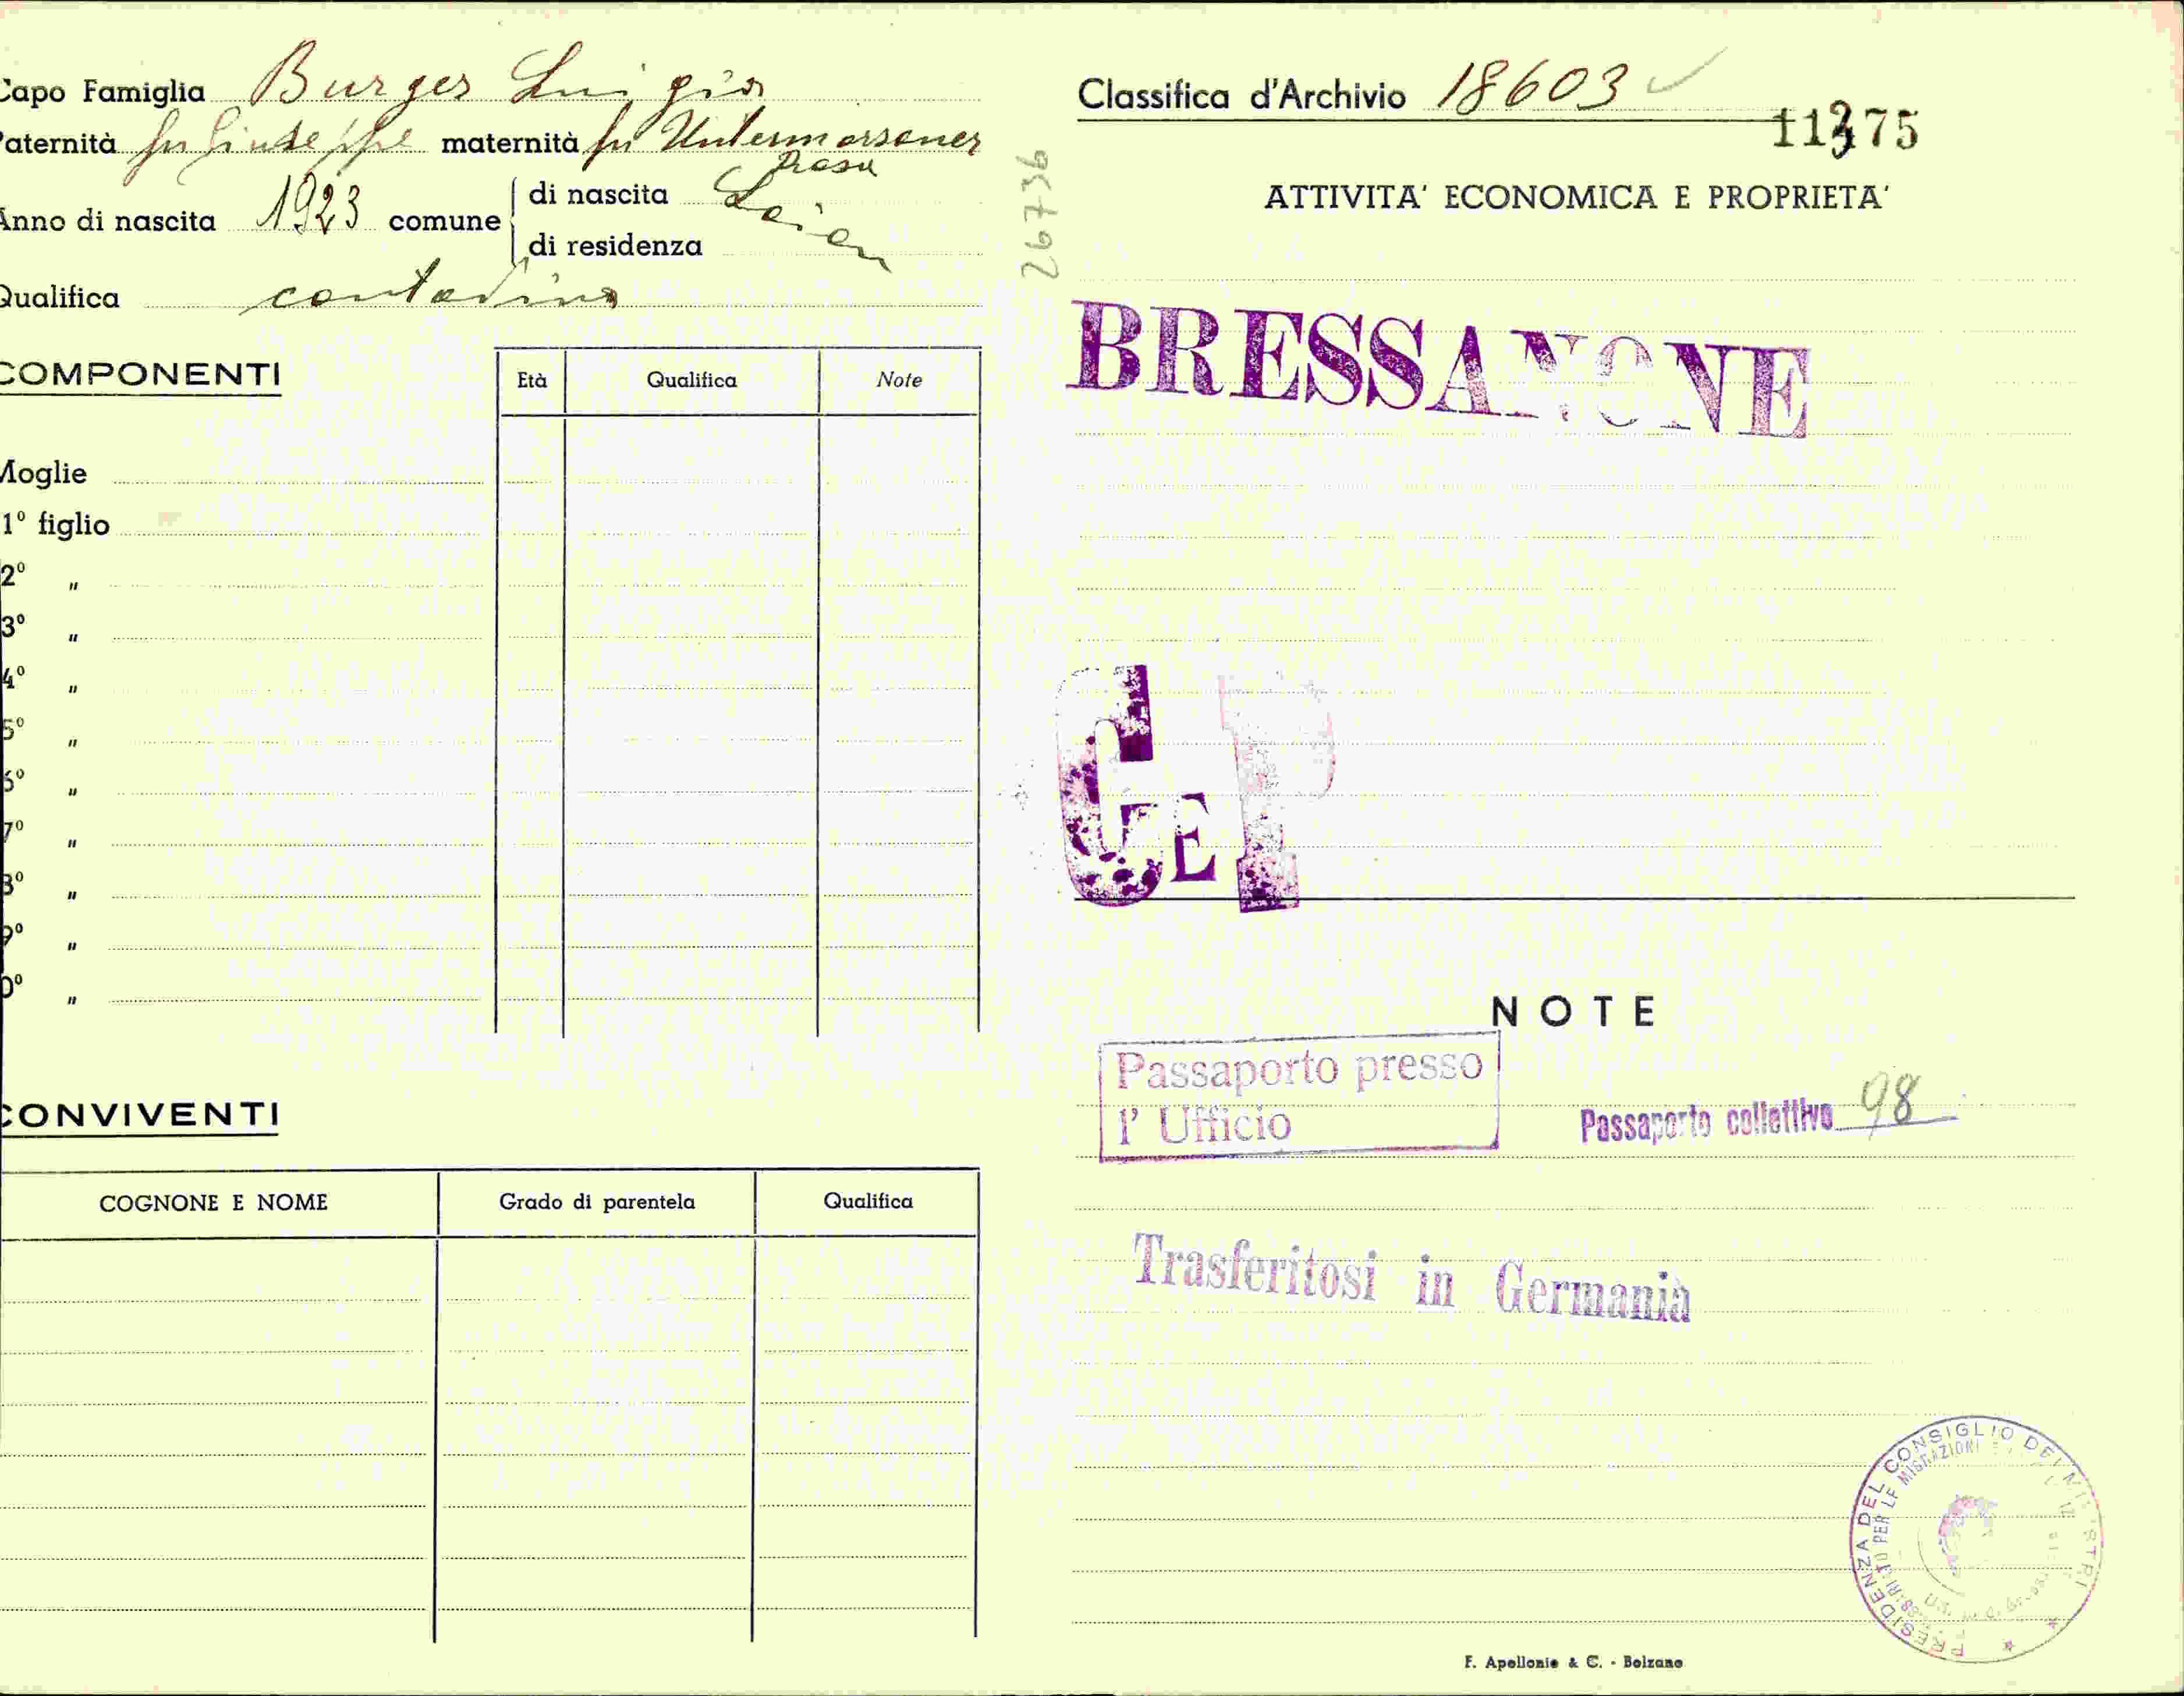 Capo Famiglia Burger Luigi
Paternità fu Giuseppe maternità fu Untermarzoner
Rosa
Anno di nascita 1923 comune di nascita Laion
di residenza
Qualifica contadino
COMPONENTI
Età Qualifica Note
Moglie
1º figlio
2º "
3º "
4º "
5º "
6º "
7º "
8º "
9º "
0º "
CONVIVENTI
COGNONE E NOME Grado di parentela Qualifica
26736
Classifica d'Archivio 18603
11375
ATTIVITA' ECONOMICA E PROPRIETA'
BRESSANONE
CEP
NOTE
Passaporto presso
l' Ufficio
Passaporto collettivo 98
Trasferitosi in Germania
PRESIDENZA DEL CONSIGLIO DEI MINISTRI
PER LE MIGRAZIONI
F. Apollonio & C. - Bolzano